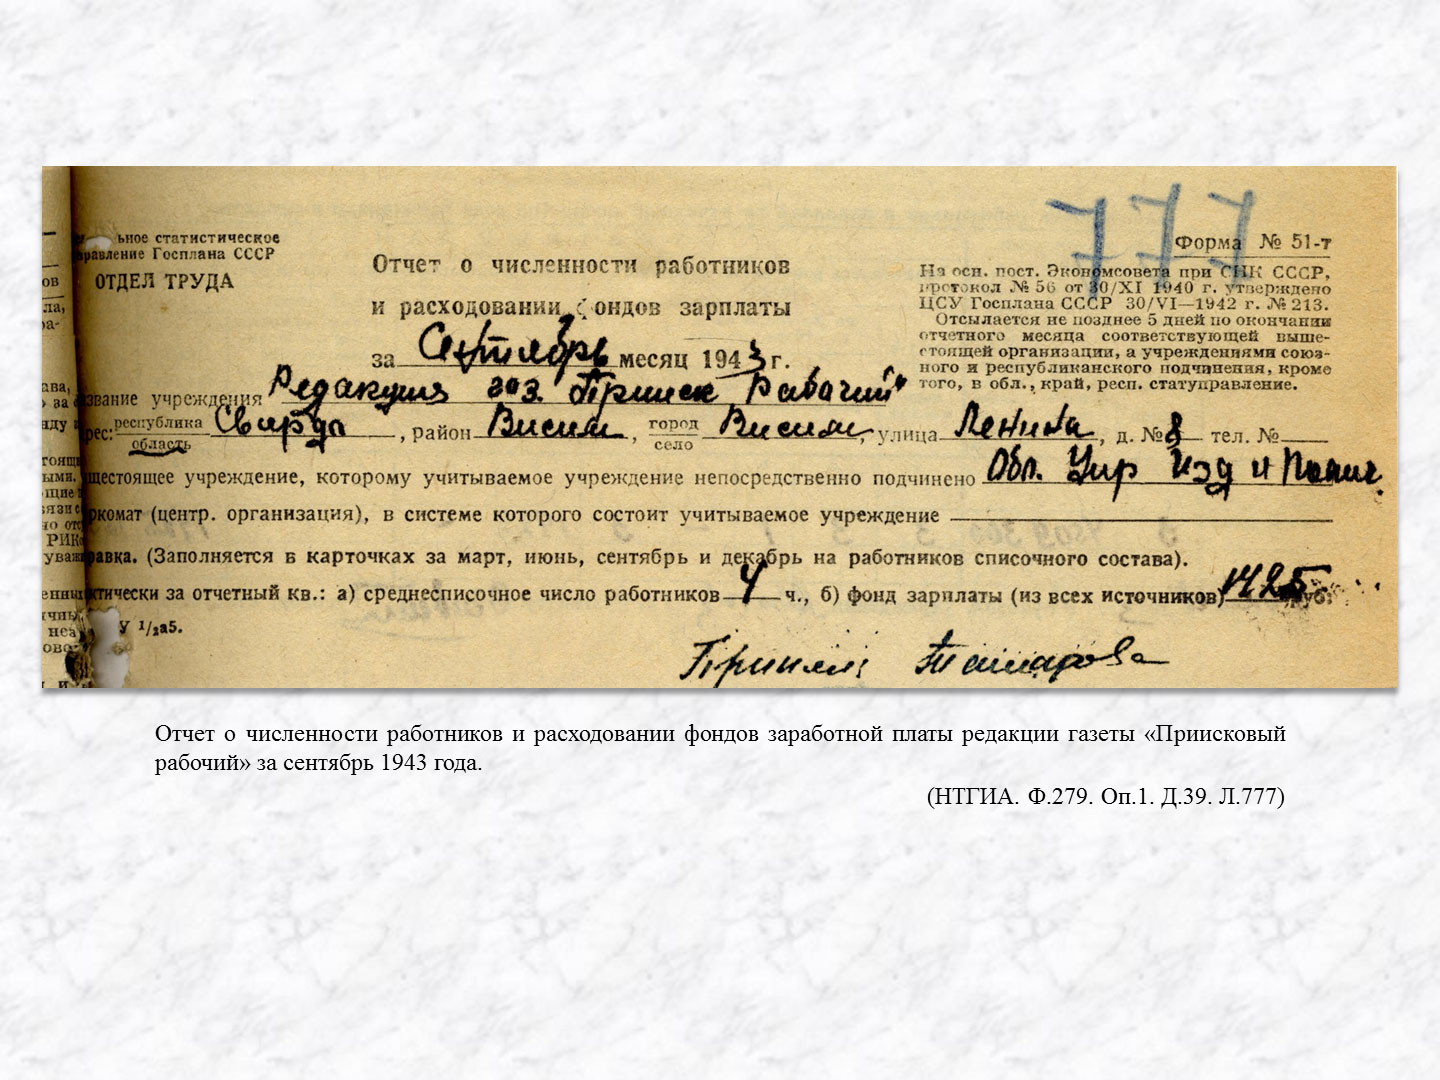 777
ьное статистическое
равление Госплана СССР
ОТДЕЛ ТРУДА
Отчет о численности работников
и расходовании фондов зарплаты
за Сентябрь месяц 1943 г.
Форма № 51-т
На осн. пост. Экономсовета при СНК СССР,
протокол № 56 от 30/XI 1940 г. утверждено
ЦСУ Госплана СССР 30/VI—1942 г. № 213.
Отсылается не позднее 5 дней по окончании
отчетного месяца соответствующей выше-
стоящей организации, а учреждениями союз-
ного и республиканского подчинения, кроме
того, в обл., край, респ. статуправление.
звание учреждения Редакция газ. Прииск Рабочий"
рес: республика область Свердл, район Висим, город село Висим, улица Ленина, д. № 8 тел. №
щестоящее учреждение, которому учитываемое учреждение непосредственно подчинено Обл. Упр Изд и Полиг.
ркомат (центр. организация), в системе которого состоит учитываемое учреждение
равка. (Заполняется в карточках за март, июнь, сентябрь и декабрь на работников списочного состава).
ктически за отчетный кв.: а) среднесписочное число работников 4 ч., б) фонд зарплаты (из всех источников) 1425 руб.
У 1/2а5.
Отчет о численности работников и расходовании фондов заработной платы редакции газеты «Приисковый
рабочий» за сентябрь 1943 года.
(НТГИА. Ф.279. Оп.1. Д.39. Л.777)